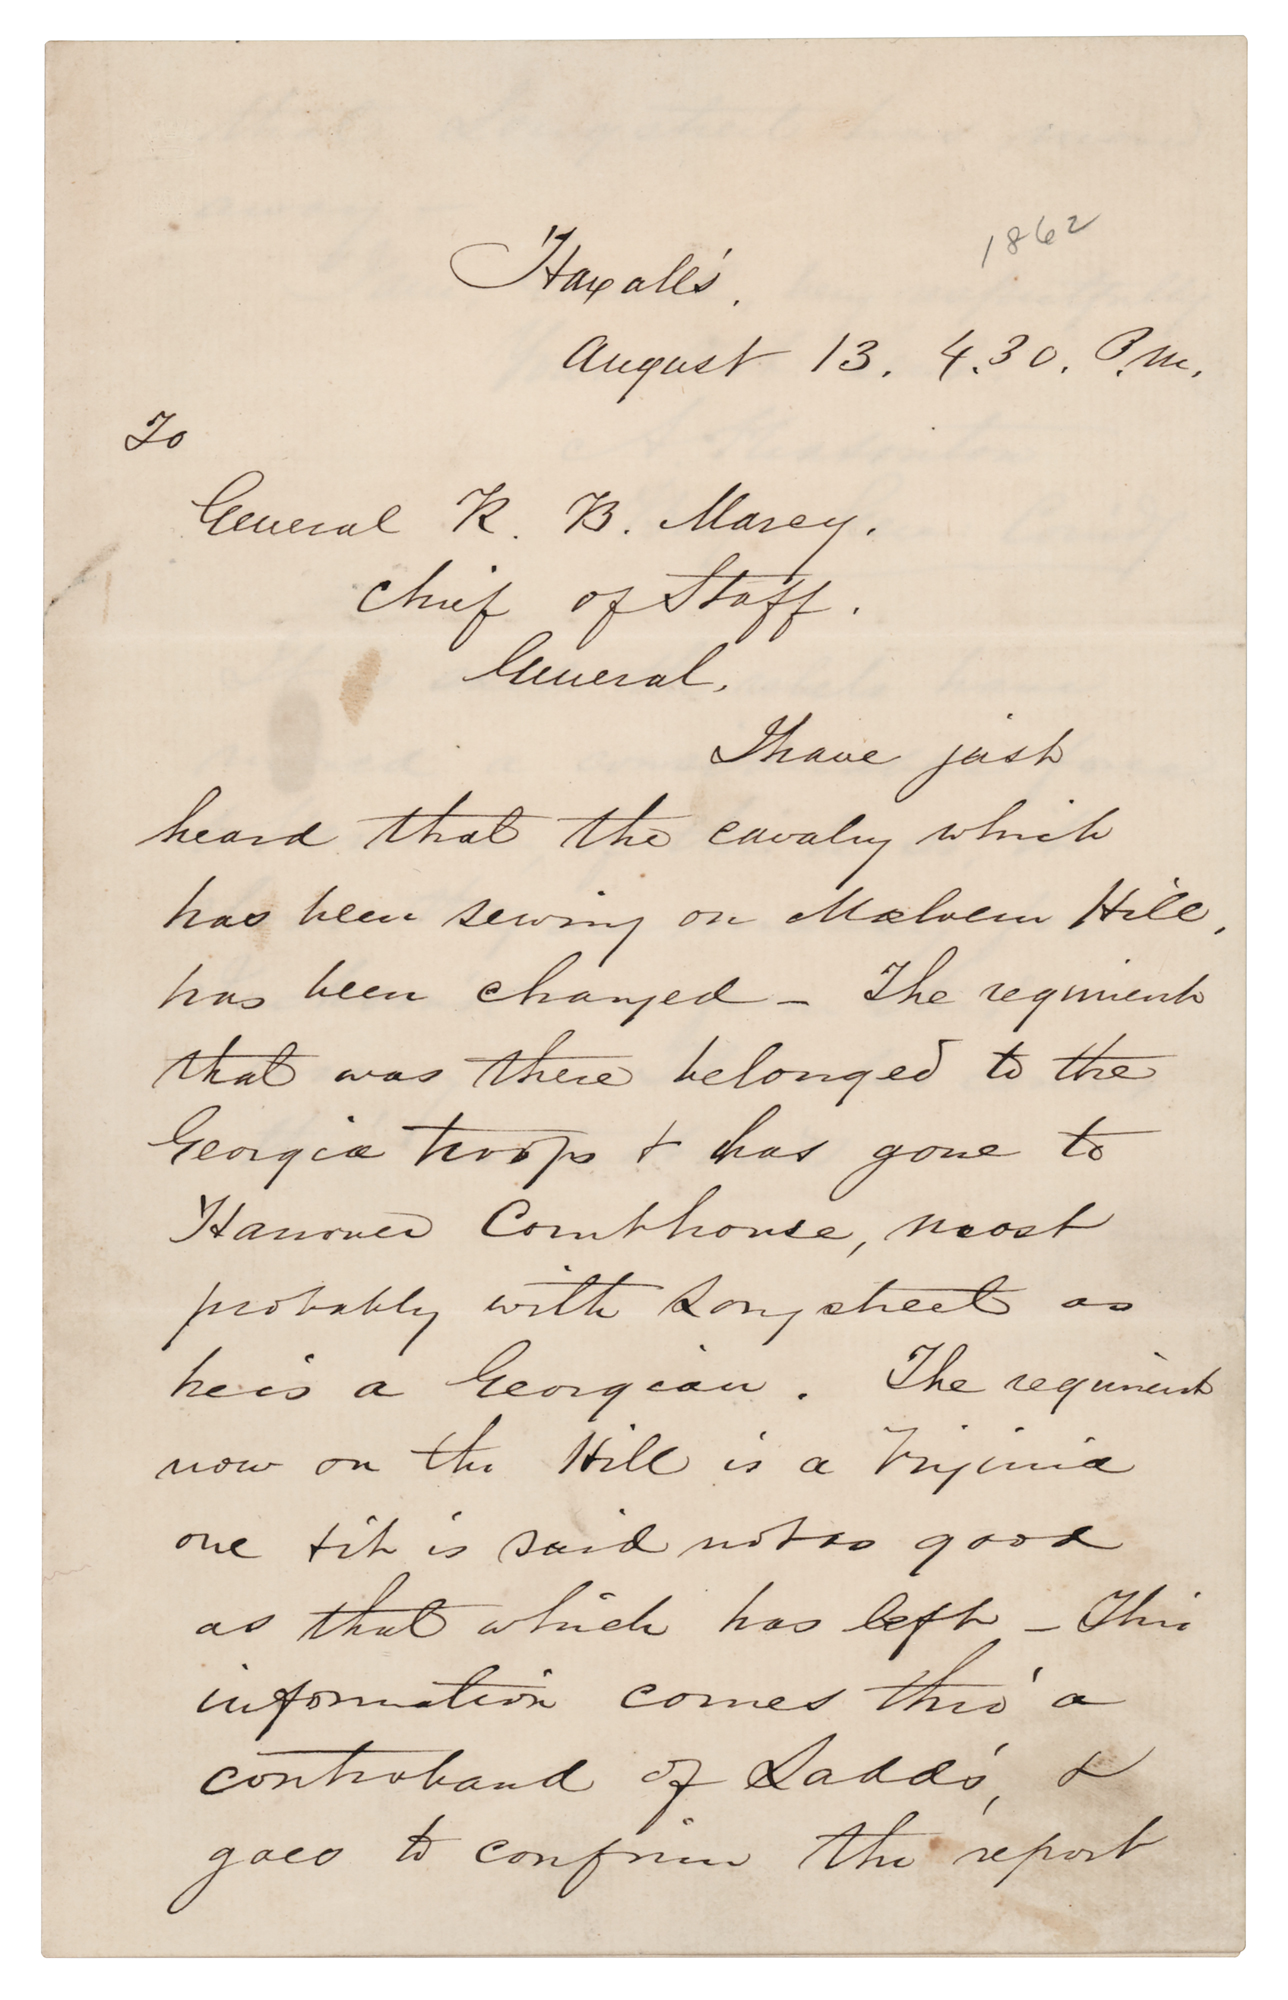 Haxall's.
1862
August 13. 4.30. P.M.
To
General R. B. Marcy.
Chief of Staff.
General.
I have just
heard that the cavalry which
has been serving on Malvern Hill,
has been changed – The regiment
that was there belonged to the
Georgia troops & has gone to
Hanover Courthouse, most
probably with Longstreet as
he is a Georgian. The regiment
now on the Hill is a Virginia
one & it is said not as good
as that which has left – This
information comes thro' a
contraband of Ladd's, &
goes to confirm the report